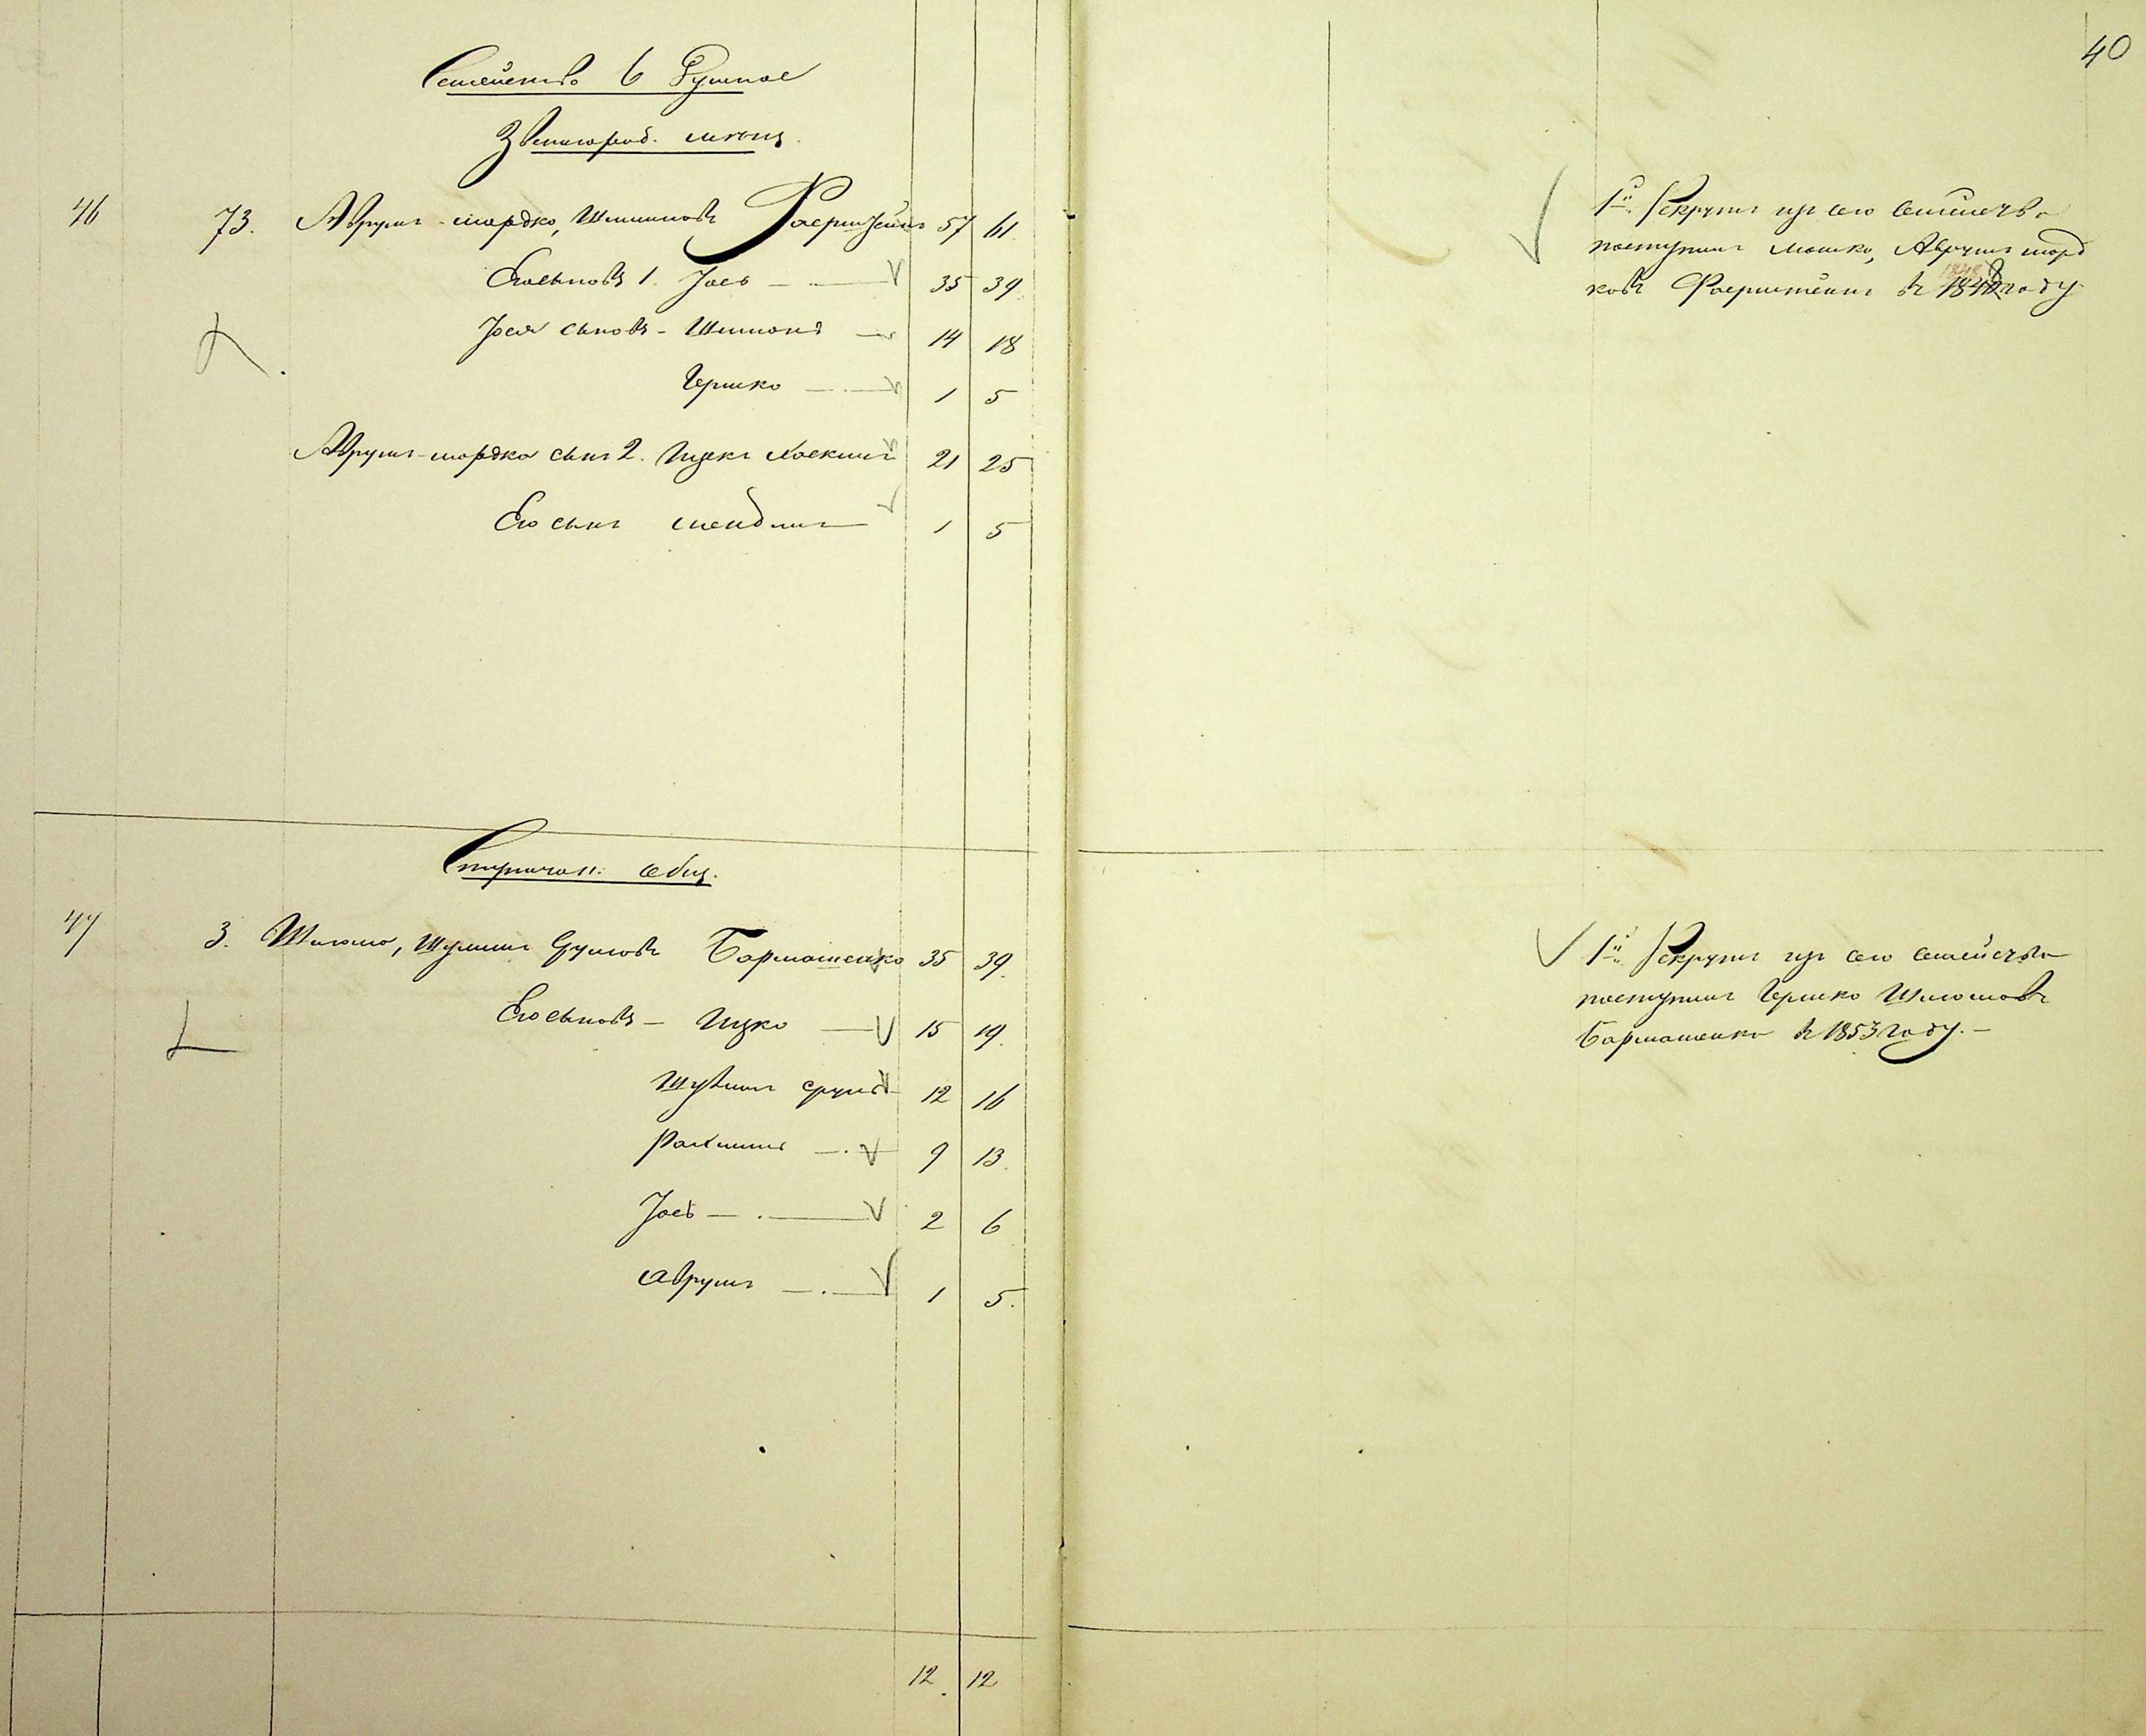 40
Семейство 6 Душное
Звенигород. мѣщ.
46 73. Аврумъ-мордко, Шимоновъ Фаерштейнъ 57 61
Его сыновья 1. Іось 35 39
Іося сыновья - Шимонъ 14 18
Гершко 1 5
Аврумъ-мордка сынъ 2. Ицекъ Хаскель 21 25
Его сынъ Мендель 1 5
1й Рекрутъ изъ сего семейства
поступилъ Мошко, Аврумъ морд
ковъ Фаерштейнъ въ 1848 году
общ.
47 3. Шлюмо, Шулимъ Сруловъ Бармашенко 35 39
Его сыновья - Ицко 15 19
Шулимъ сруль 12 16
Рахмиль 9 13
Іось 2 6
Аврумъ 1 5.
1й Рекрутъ изъ сего семейства
поступилъ Гершко Шлюмовъ
Бармашенко въ 1853 году. —
12 12